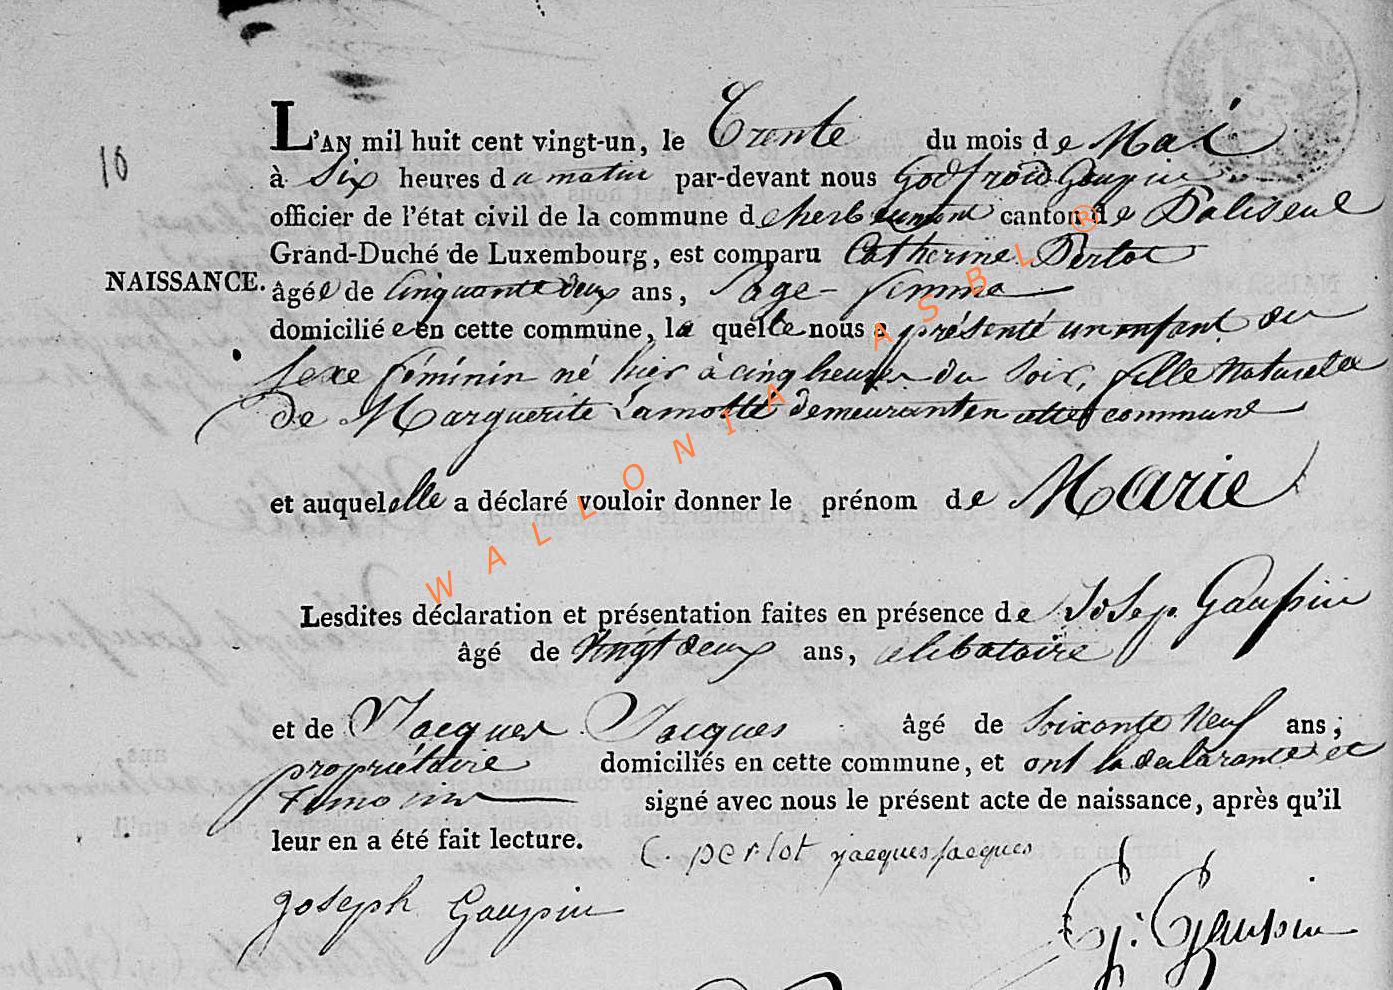 L'AN mil huit cent vingt-un, le Trente du mois de Mai
10
à Six heures du matin par-devant nous Godfroid Goupin
officier de l'état civil de la commune d'herbeumont canton de Paliseul
Grand-Duché de Luxembourg, est comparu Catherine Perlot
NAISSANCE.
âgée de Cinquante deux ans, Sage-femme
domiciliée en cette commune, la quelle nous a présenté un enfant du
Sexe féminin né hier à cinq heures du Soir, fille Naturelle
de Marguerite Lamotte demeurant en cette commune
et auquel elle a déclaré vouloir donner le prénom de Marie
Lesdites déclaration et présentation faites en présence de Josep. Gaupin
âgé de Vingt deux ans, celibataire
et de Jacques Jacques âgé de Soixante Neuf ans;
propriétaire domiciliés en cette commune, et ont la declarante et
temoins signé avec nous le présent acte de naissance, après qu'il
leur en a été fait lecture. C. perlot jacques jacques
joseph Gaupin G: Gaupin
WALLONIA ASBL ®